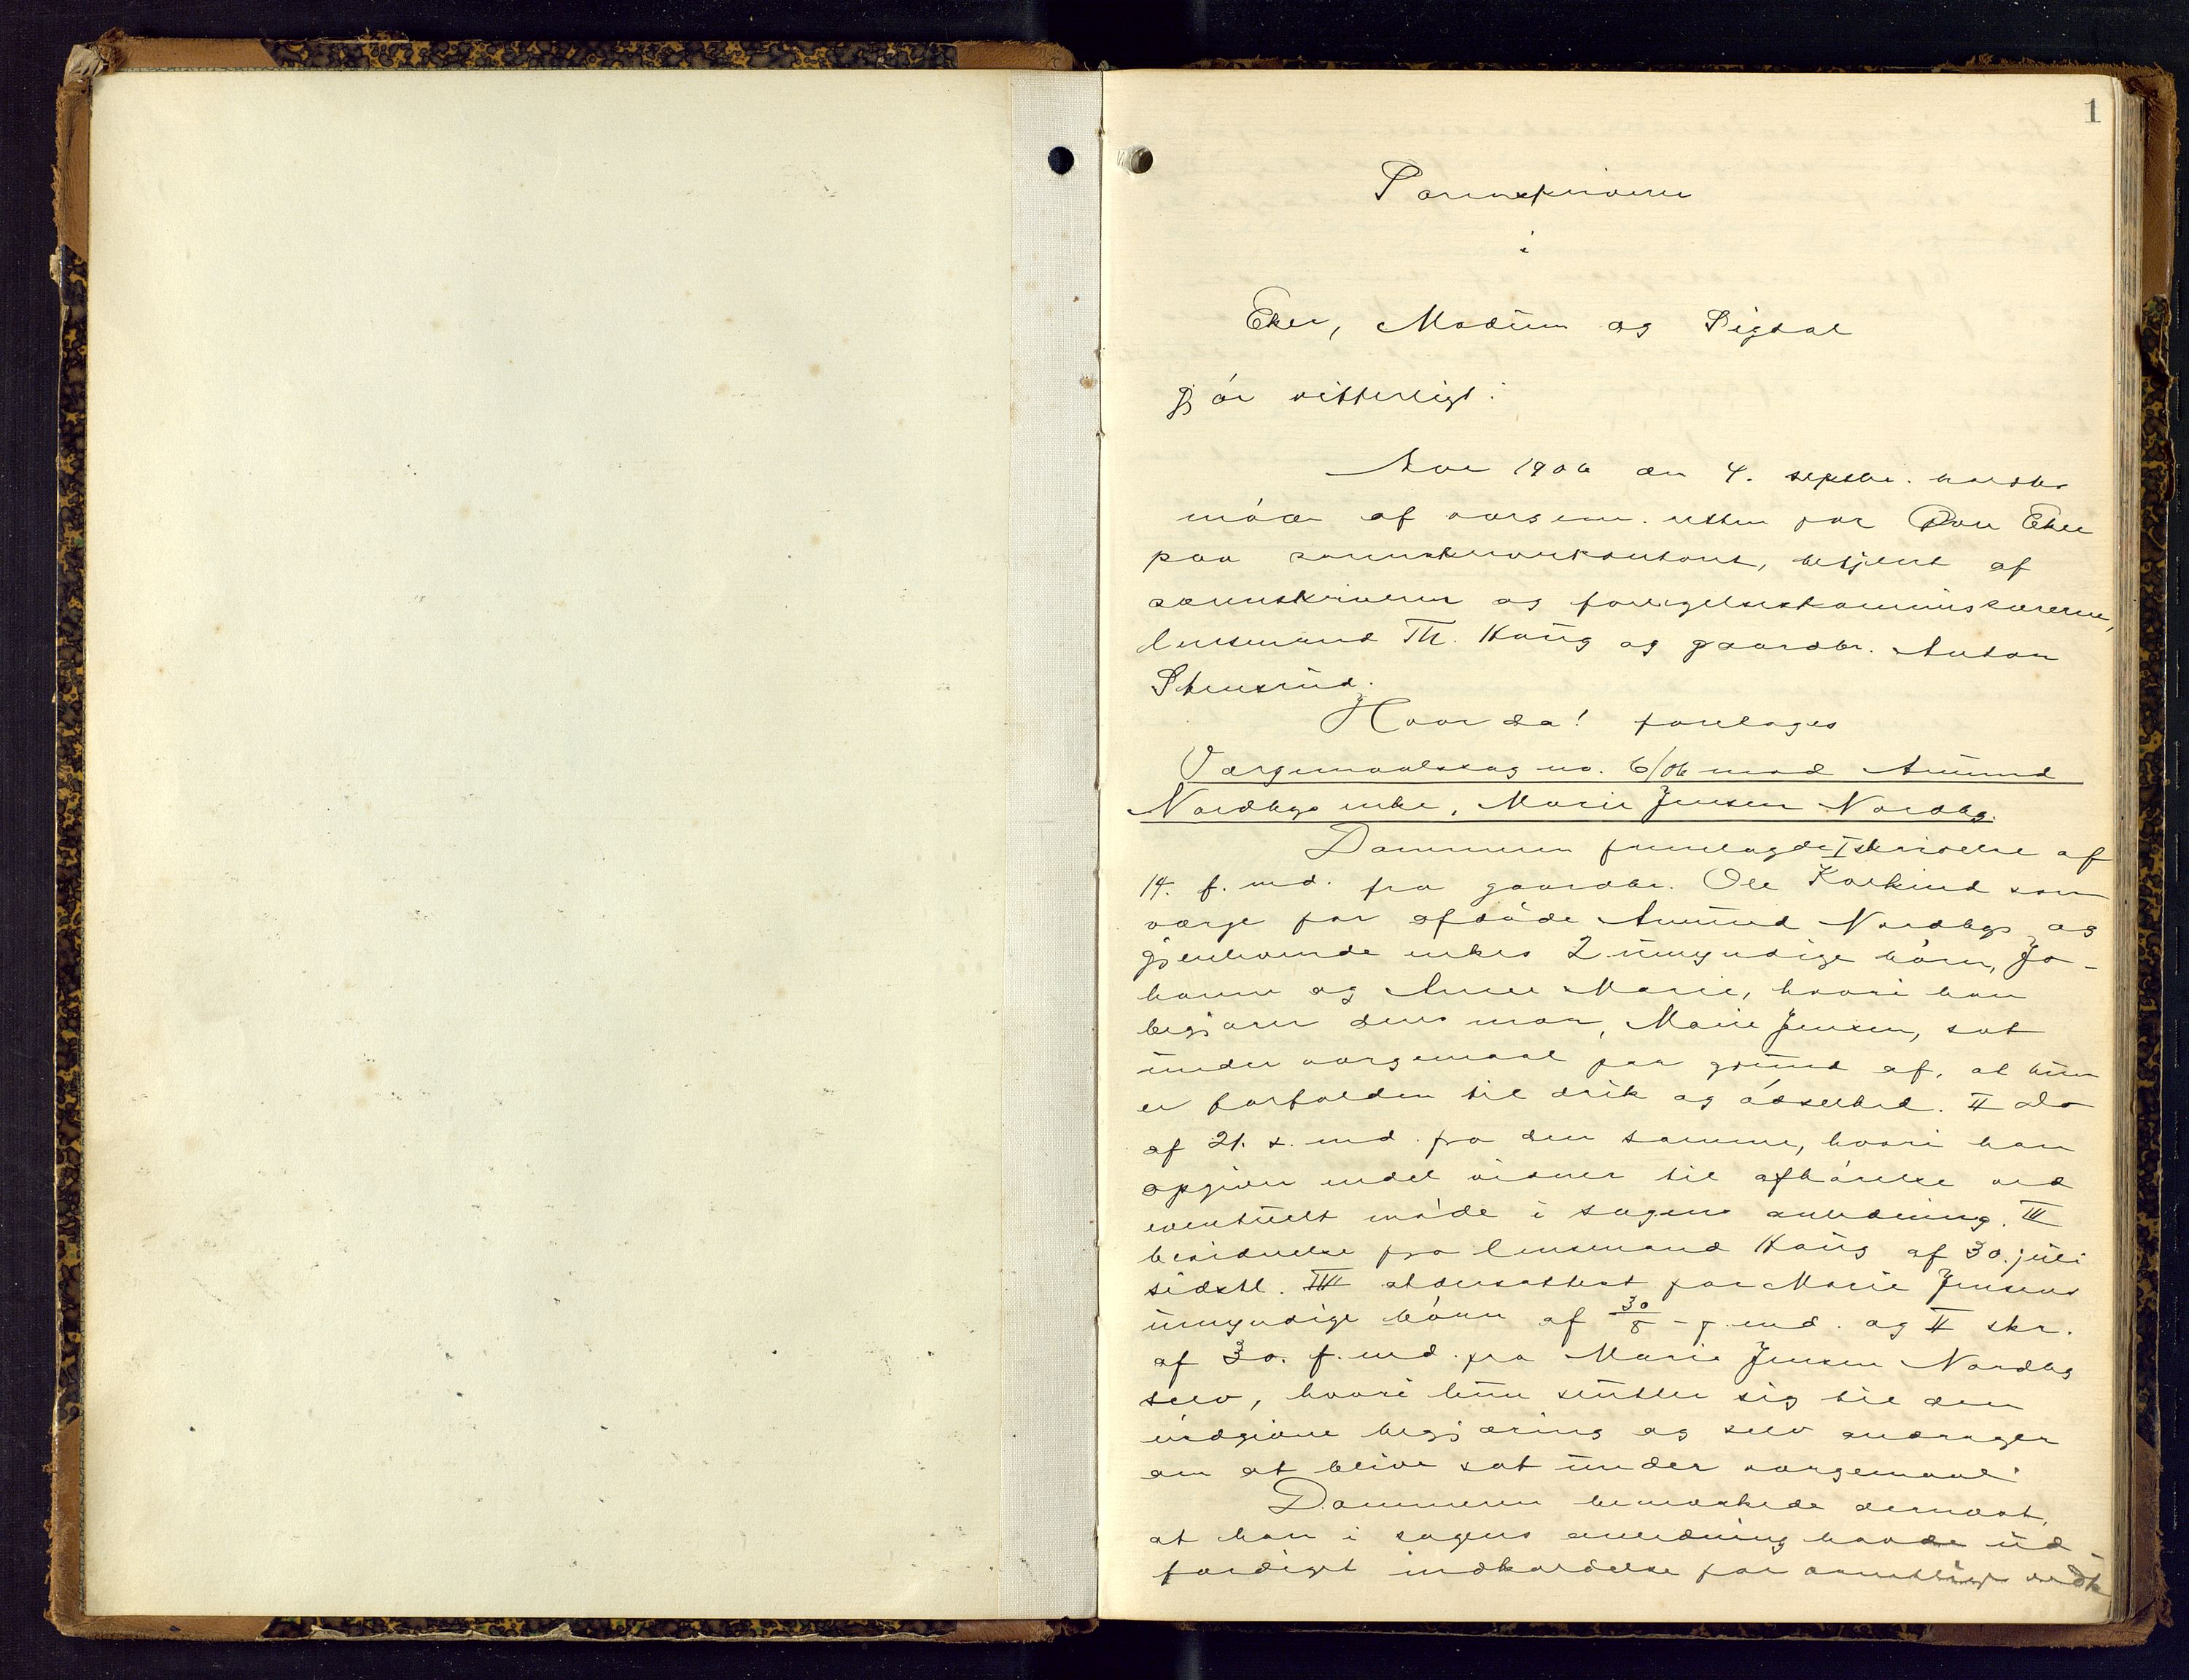 1
Sorenskriveren
i
Eker, Modum og Sigdal
gjør vitterligt:
Aar 1906 den 4. septbr. holdtes
møde af vergem. retten for Øvre Eker
paa sorenskriverkontoret, betjent af
sorenskriveren og forligelseskommissærerne,
lensmand Th. Haug og gaardbr. Anton
Stensrud.
Hvor da! foretoges
Vergemaalssag no. 6/06 mod Amund
Nordbys enke, Marie Jensen Nordby.
Dommeren fremlagde I skrivelse af
14. f. md. fra gaardbr. Ole Kolkind som
verge for afdøde Amund Nordbys og
gjenlevende enkes 2 umyndige børn, Jo-
hanne og Anne Marie, hvori han
begjærer deres mor, Marie Jensen, sat
under vergemaal paa grund af, at hun
er forfalden til drik og ødselhed. II Do
af 21. s. md. fra den samme, hvori han
opgiver endel vidner til afhørelse ved
eventuelt møde i sagens anledning. III
bevidnelse fra lensmand Haug af 30. juli
sidstl. IV aldersattest for Marie Jensens
umyndige børn af 30/8 - f. md. og V skr.
af 30. f. md. fra Marie Jensen Nordby
selv, hvori hun slutter sig til den
indgivne begjæring og selv andrager
om at blive sat under vergemaal.
Dommeren bemærkede dernæst,
at han i sagens anledning havde ud-
færdiget indkaldelse for samtlige vedk